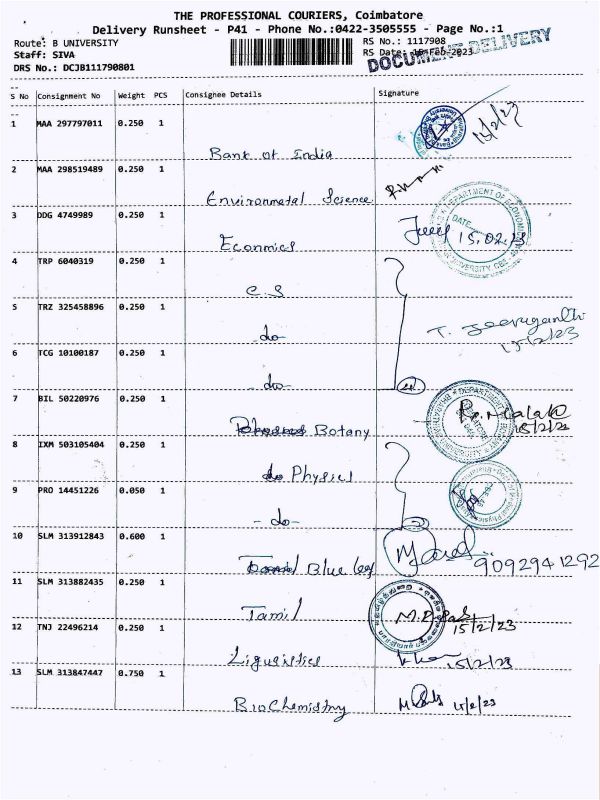 THE PROFESSIONAL COURIERS, Coimbatore
Delivery Runsheet - P41 - Phone No.:0422-3505555 - Page No.:1
Route: B UNIVERSITY
RS No.: 1117908
Staff: SIVA
RS Date: 15-Feb-2023
DOCUMENT DELIVERY
DRS No.: DCJB111790801
S No Consignment No Weight PCS Consignee Details Signature
1 MAA 297797011 0.250 1
Bank of India 15/2/23
2 MAA 298519489 0.250 1
Environmetal Science
3 DDG 4749989 0.250 1
Econmics 15.02.23
DEPARTMENT OF ECONOMICS
DATE
4 TRP 6040319 0.250 1
C.S
5 TRZ 325458896 0.250 1
-do-
T. Jeeviganthi
15/2/23
6 TCG 10100187 0.250 1
-do-
7 BIL 50220976 0.250 1
Botany 15/2/23
8 IXM 503105404 0.250 1
Physics
9 PRO 14451226 0.050 1
-do-
10 SLM 313912843 0.600 1
Blue leaf 9092941292
11 SLM 313882435 0.250 1
Tamil 15/2/23
12 TNJ 22496214 0.250 1
Ligusistics 15/2/23
13 SLM 313847447 0.750 1
BioChemistry 15/2/23